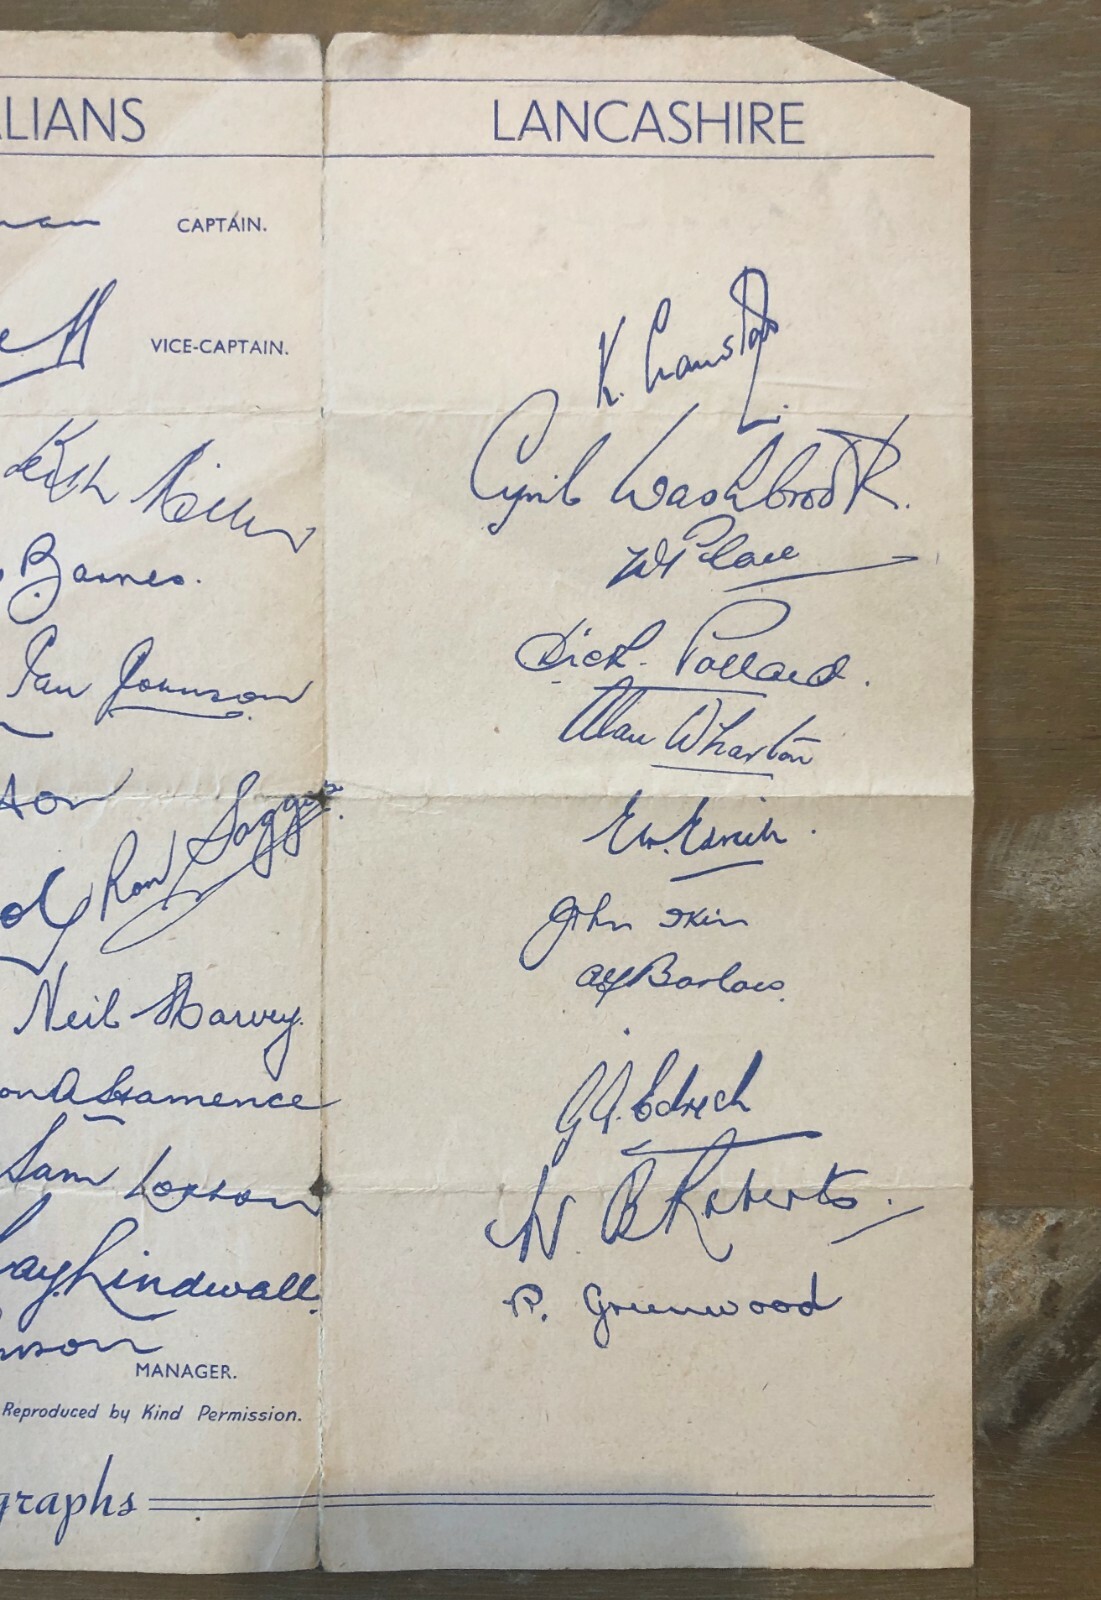 LIANS
CAPTAIN.
VICE-CAPTAIN.
Keith Miller
Barnes.
Ian Johnson
Ron Saggers
Neil Harvey.
Hamence
Sam Loxton
ay Lindwall.
nson
MANAGER.
Reproduced by Kind Permission.
graphs
LANCASHIRE
K. Cranston
Cyril Washbrook.
W Place
Dick. Pollard.
Alan Wharton
John Ikin
Barlow.
G A. Edrich
W B Roberts.
P. Greenwood